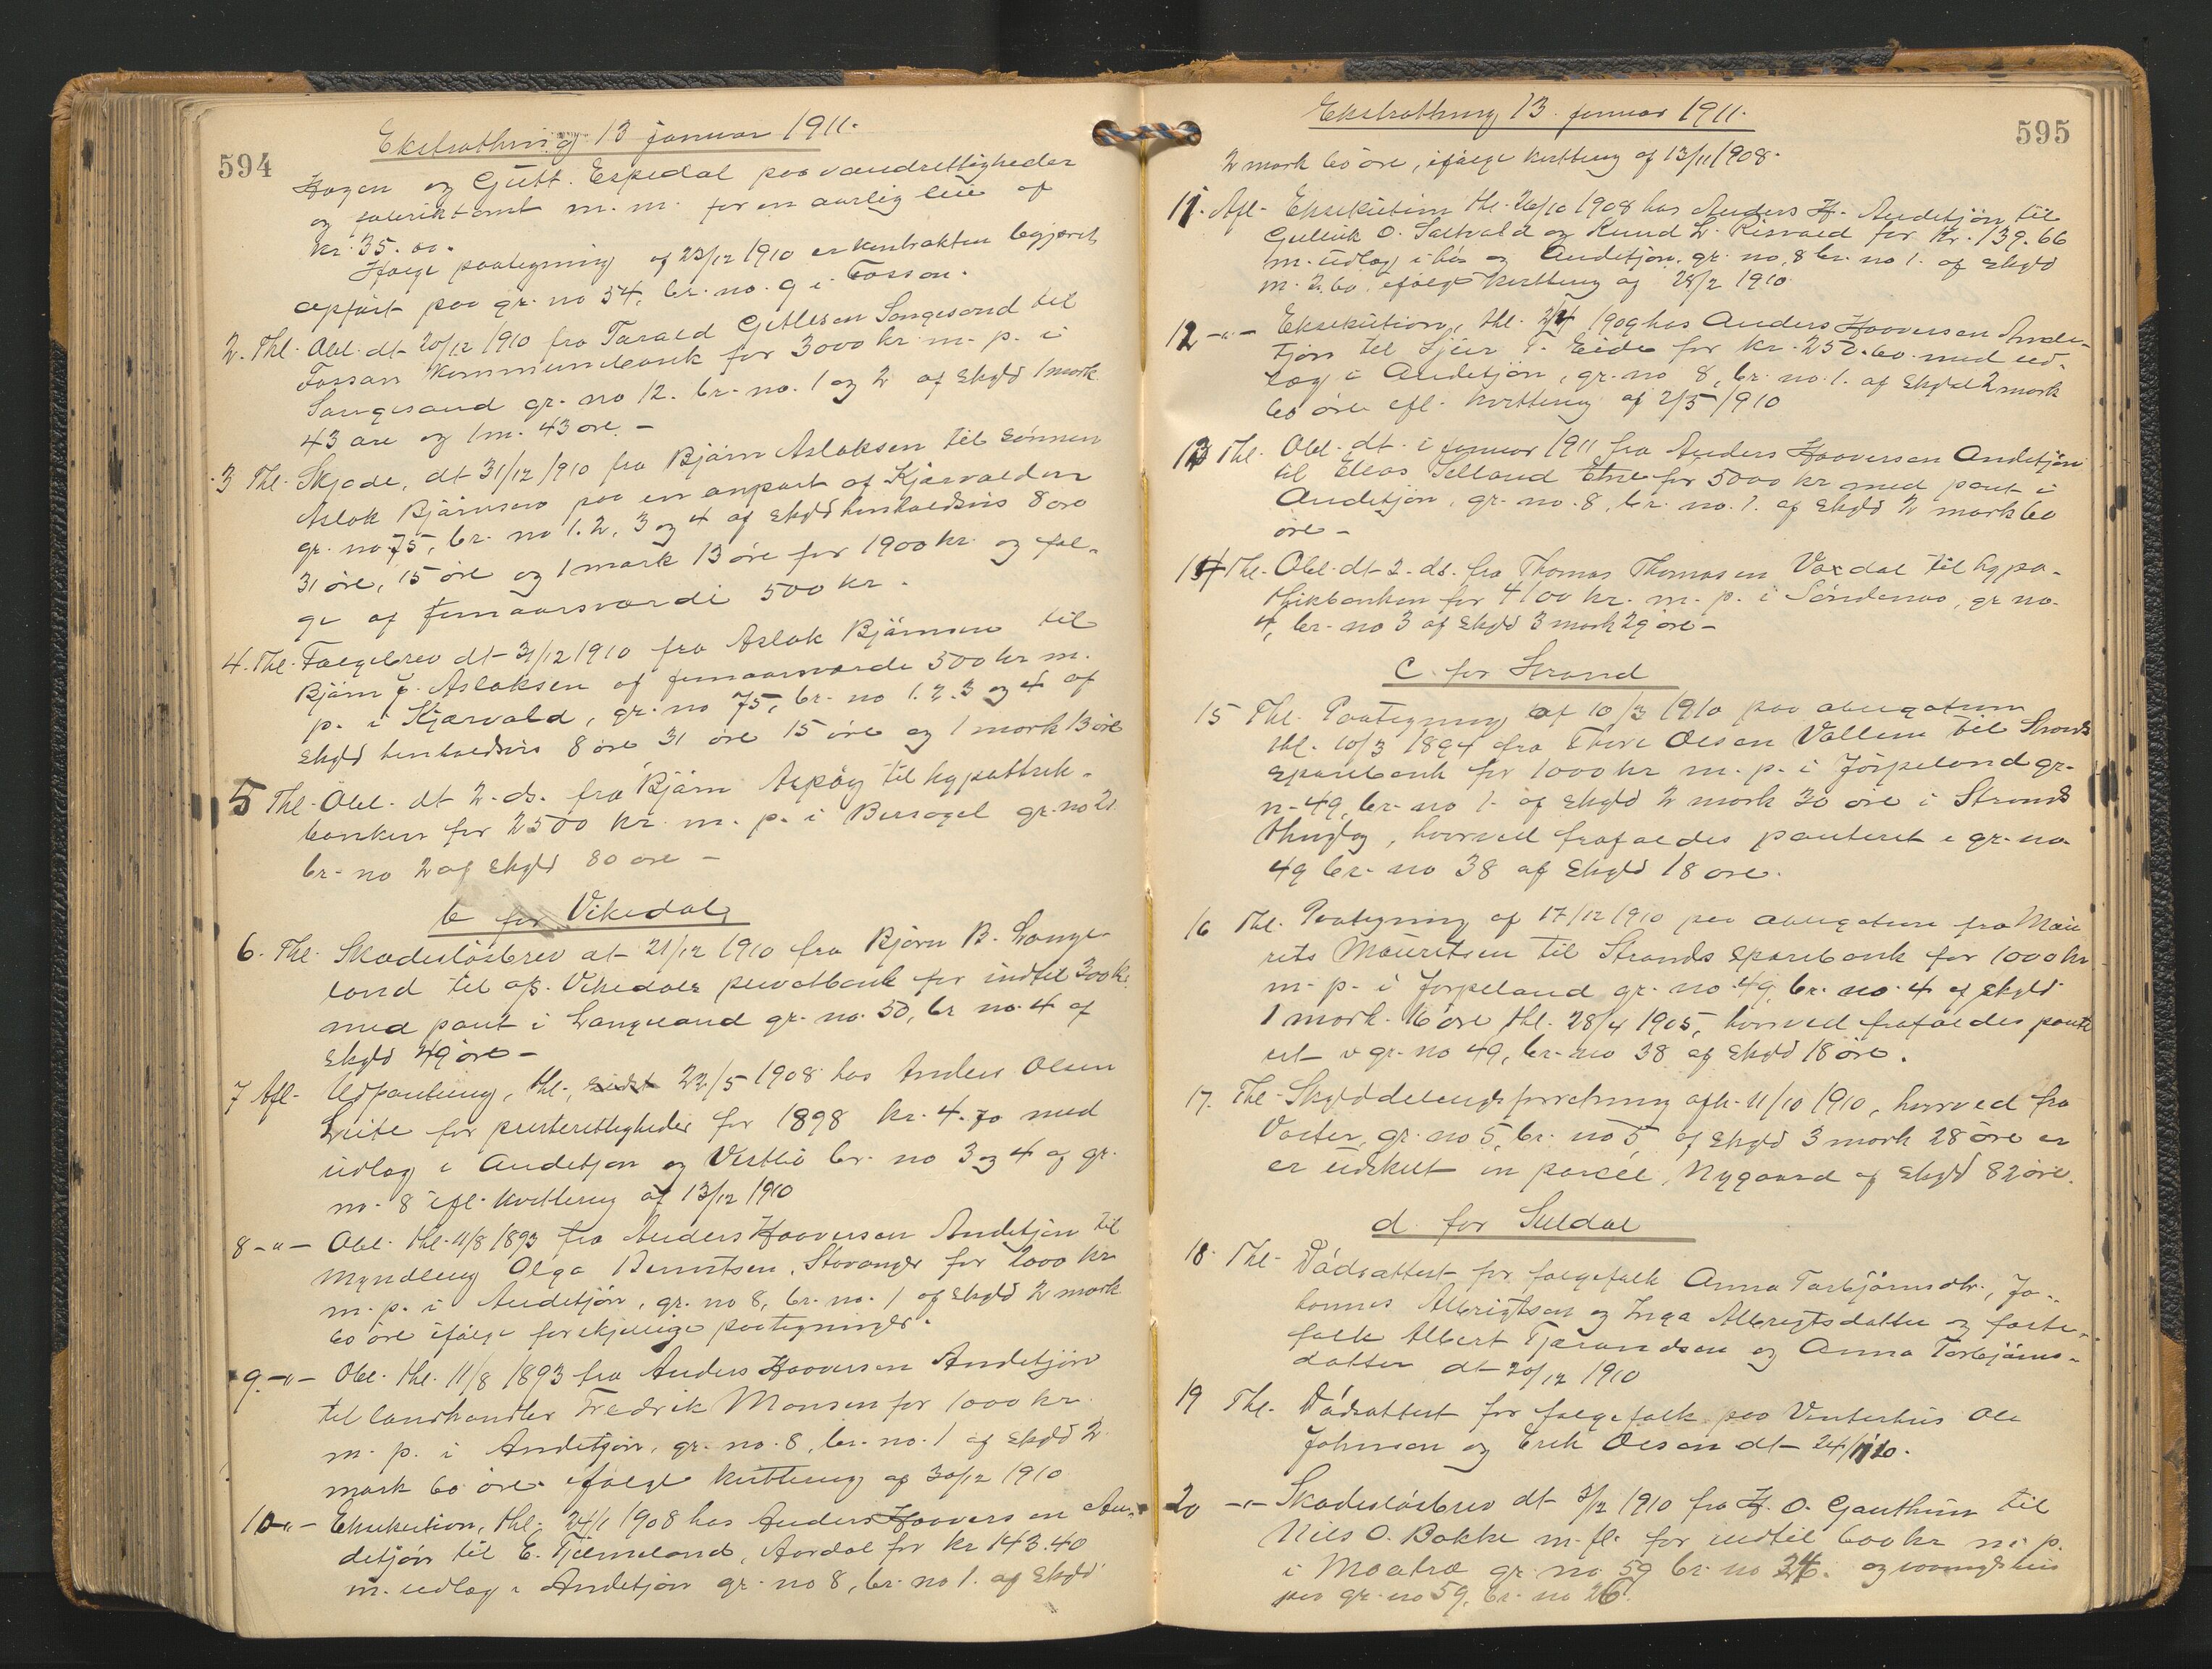 594
Ekstrathing 13 januar 1911.
Hagen og Gutt. Espedal paa vandrettigheder
og fabriktomt m. m. for en aarlig leie af
kr. 35.00.
Ifølge paategning af 23/12 1910 er kontrakten begjært
opført paa gr. no 54, br. no. 9 i Fossan.
2. Thl. Obl. dt 20/12 1910 fra Tarald Gitlesen Songesand til
Fossan kommunebank for 3000 kr m. p. i
Songesand gr. no 12. br. no. 1 og 2 af skyld 1 mark
43 øre og 1 m. 43 øre. -
3 Thl. Skjøde, dt 31/12 1910 fra Bjørn Aslaksen til sønnen
Aslak Bjørnsen paa en anpart af Kjærvolden
gr. no 75, br. no 1. 2, 3 og 4 af skyld henholdsvis 8 øre
31 øre, 15 øre og 1 mark 13 øre for 1900 kr. og føl-
ge af femaarsværdi 500 kr.
4. Thl. Følgebrev dt 31/12 1910 fra Aslak Bjørnsen til
Bjørn Aslaksen af femaarsværdi 500 kr m.
p. i Kjærvold, gr. no 75, br. no 1. 2. 3 og 4 af
skyld henholdsvis 8 øre 31 øre 15 øre og 1 mark 13 øre
5 Thl. Obl. dt 2. ds. fra Bjørn Aspøy til hypothek-
banken for 2500 kr m. p. i Bersagel gr. no 21
br. no 2 af skyld 80 øre -
b for Vikedal
6. Thl. Skadesløsbrev dt 21/12 1910 fra Bjørn B. Lange-
land til a/s. Vikedals privatbank for indtil 300 kr.
med pant i Langeland gr. no. 50, br no. 4 af
skyld 49 øre -
7 Afl. Udpantning, thl., 22/5 1908 hos Anders Olsen
Leite for presterettigheder for 1898 kr. 4.70 med
udlæg i Andetjøn og Vestbø br. no 3 og 4 af gr.
no. 8 ifl. kvittering af 13/12 1910
8 -"- Obl. thl. 11/8 1893 fra Anders Haaversen Andetjøn til
myndling Olga Berntsen, Stavanger for 2000 kr
m. p. i Andetjøn, gr. no 8, br. no. 1 af skyld 2 mark
60 øre ifølge forskjellige paategninger.
9. -"- Obl. thl. 11/8 1893 fra Anders Haaversen Andetjøn
til landhandler Fredrik Monsen for 1000 kr.
m. p. i Andetjøn, gr. no. 8, br. no. 1 af skyld 2
mark 60 øre. ifølge kvittering af 30/12 1910
10 -"- Eksekution, thl. 24/1 1908 hos Anders Haaversen An-
detjøn til E. Tjelmeland, Aardal for kr 143.40
m. udlæg i Andetjøn gr. no 8, br. no 1. af skyld
595
Ekstrathing 13. januar 1911.
2 mark 60 øre, ifølge kvittering af 13/11 1908.
11. Afl. Eksekution thl. 26/10 1908 hos Anders H. Andetjøn til
Gullik O. Saltvold og Knud L. Risvold for kr. 139.66
m. udlæg i løs og Andetjøn, gr. no. 8 br. no 1. af skyld
m. 2.60. ifølge kvittering af 28/2 1910
12 -"- Eksekution, thl. 1909 hos Anders Haaversen Ande-
tjøn til T. Eide for kr. 252.60 med ud-
læg i Andetjøn, gr. no 8, br. no. 1. af skyld 2 mark
60 øre ifl. kvittering af 2/5 1910
13 Thl. Obl. dt. i januar 1911 fra Anders Haaversen Andetjøn
til Elias Etne for 5000 kr med pant i
Andetjøn, gr. no. 8, br. no. 1. af skyld 2 mark 60
øre -
14 Thl. Obl. dt 2. ds. fra Thomas Thomasen Vaxdal til hypo-
thekbanken for 4100 kr. m. p. i Søndenaa, gr no.
4, br. no 3 af skyld 3 mark 29 øre -
C. for Strand
15 Thl. Paategning af 10/3 1910 paa obligation
thl. 10/3 1894 fra Thore Olsen Vallem til Strands
sparebank for 1000 kr m. p. i Jørpeland gr.
n. 49, br. no 1. af skyld 2 mark 30 øre i Strands
thinglag, hvorved frafaldes panteret i gr. no
49 br. no 38 af skyld 18 øre.
16 Thl. Paategning af 17/12 1910 paa obligation fra Mau
rits Mauritsen til Strands sparebank for 1000 kr
m. p. i Jørpeland gr. no. 49, br. no. 4 af skyld
1 mark. 16 øre thl. 28/4 1905, hvorved frafaldes pante
ret i gr. no 49, br. no 38 af skyld 18 øre.
17. Thl. Skylddelingsforretning afh. 11/10 1910, hvorved fra
Voster, gr. no 5, br. no 5 af skyld 3 mark 28 øre er
er udskilt en parcel, Nygaard af skyld 82 øre.
d. for Suldal
18. Thl. Dødsattest for følgefolk Anna Torbjørnsdtr., Jo-
hannes Albrigtsen og Inga Albrigtsdatter og føste-
folk Albert Tjerandsen og Anna Torbjørns-
datter dt 20/12 1910
19 Thl. Dødsattest for følgefolk paa Vinterhus Ole
Johnsen og Erik Olsen dt 24/
20 -"- Skadesløsbrev dt 3/12 1910 fra H. O. Gauthun til
Nils O. Bakke m. fl. for indtil 600 kr m. p.
i Moatræ gr. no 59 br. no 24. og vaaningshus
paa gr. no 59, br. no 26.